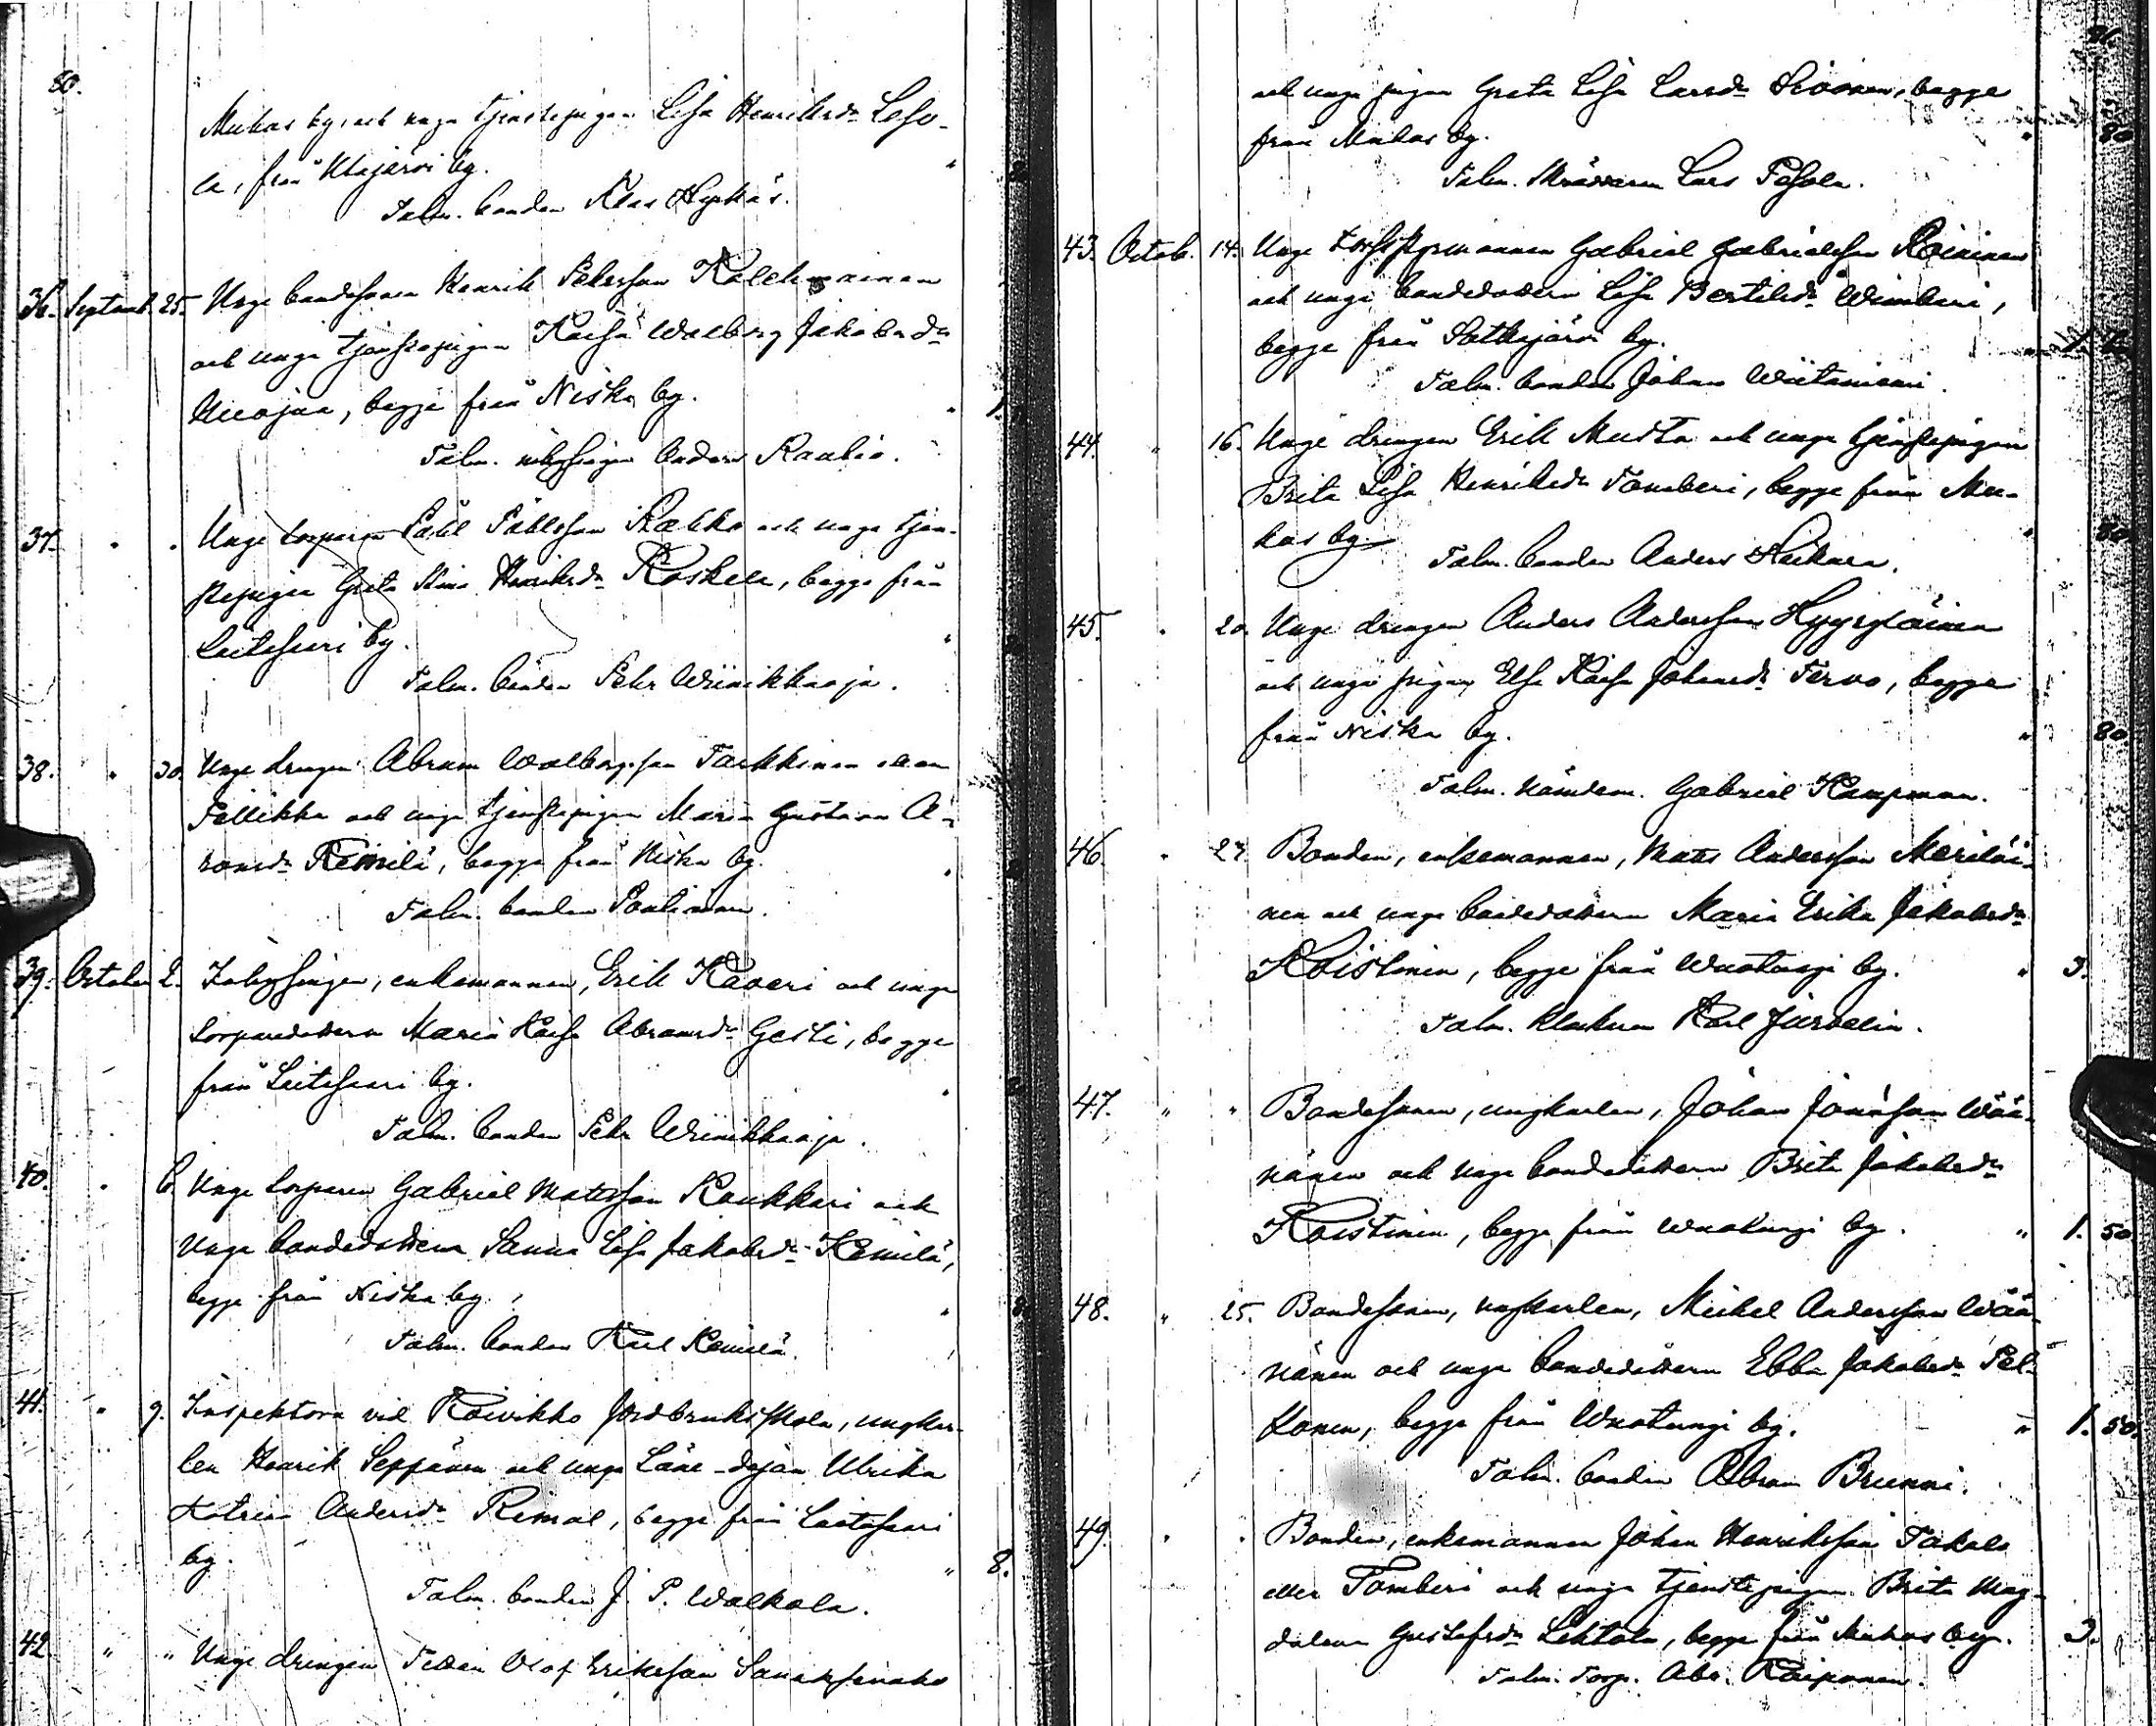 80.
Muhos by, och unga tjenstepigan Lisa Henriksdr Leso-
la, från Utajärvi by. "
Talm. bonden Klas Hyrkäs.
36. Septemb. 25. Unge bondesonen Henrik Pehrsson Kolehmainen
och unga tjenstepigan Kaisa Walborg Jakobsdr
Ukcojaa, begge från Niska by. " 1.
Talm. inhysingen Anders Raabio.
37. " " Unge torparen Påhl Påhlsson Kaikko och unga tjen-
stepigan Greta Stina Henriksdr Koskela, begge från
Laitasaari by. "
Talm. bonden Pehr Wiinikkaoja.
38. " 30. Unge drengen Abram Walborgsson Tarkkinen
Pellikka och unga tjenstepigan Maria Gustava A-
ronsdr Kemilä, begge från Niska by. "
Talm. bonden Poutiainen.
39. October 2. Inhysingen, enkemannen, Erik Kaveri och unga
torparedottern Maria Kaisa Abramsdr Gesti, begge
från Laitasaari by. "
Talm. bonden Pehr Wiinikkaoja.
40. " 6. Unge torparen Gabriel Matsson Koukkari och
unga bondedottern Sanna Lisa Jakobsdr Kemilä,
begge från Niska by. "
Talm. bonden Karl Kemilä.
41. " 9. Inspektorn vid Koivikko Jordbruksskola, ungkar-
len Henrik Seppänen och unga Ulrika
Katrina Andersdr Rimal, begge från Laitasaari
by. " 8.
Talm. bonden J. P. Walkola.
42 " " Unge drengen Olof Eriksson
och unga pigan Greta Lisa Larsdr begge
från Muhos by. " 80
Talm. Skräddaren Lars Pesola.
43. Octob. 14. Unge Gabriel Gabrielsson Roininen
och unga bondedottern Lisa Bertilsdr Wimberi,
begge från Sotkajärvi by. 1.
Talm. bonden Johan Wiitaniemi.
44. " 16. Unge drengen Erik Musta och unga tjenstepigan
Brita Lisa Henriksdr Tomberi, begge från Mu-
hos by. " 80
Talm. bonden Anders Heikura.
45. " 20. Unge drengen Anders Andersson Hyyryläinen
och unga pigan Elsa Kaisa Johansdr Tervo, begge
från Niska by. " 80
Talm. nämdem. Gabriel Kampman.
46. " 24. Bonden, enkemannen, Mats Andersson Meriläi-
nen och unga bondedottern Maria Erika Jakobsdr
Koistinen, begge från Wuotungi by. " 3.
Talm. klockaren Karl Jurvelin.
47. " " Bondesonen, ungkarlen, Johan Jonasson Wää-
nänen och unga bondedottern Brita Jakobsdr
Koistinen, begge från Wuotungi by. " 1. 50
48. " 25. Bondesonen, ungkarlen, Mickel Andersson Wää-
nänen och unga bondedottern Ebba Jakobsdr Pel-
konen, begge från Wuotungi by. " 1. 50.
Talm. bonden Abram Brunni.
49. " " Bonden, enkemannen Johan Henriksson Takalo
eller Tomberi och unga tjenstepigan Brita Mag-
dalena Gustafsdr Lehtola, begge från Muhos by. 3.
Talm. Torp. Abr. Koiponen.